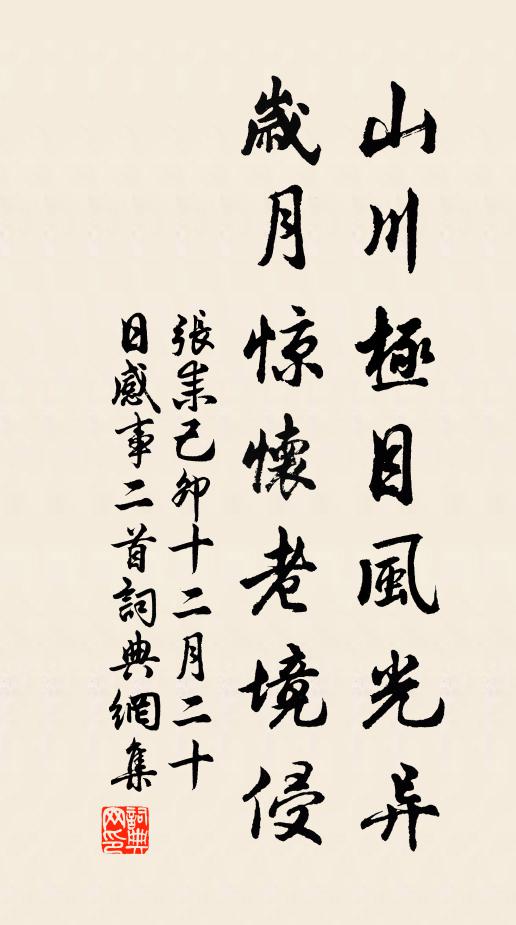 山川極目風光异
歲月惊懷老境侵
張耒己卯十二月二十
日感事二首詞典網集
詞典
网印